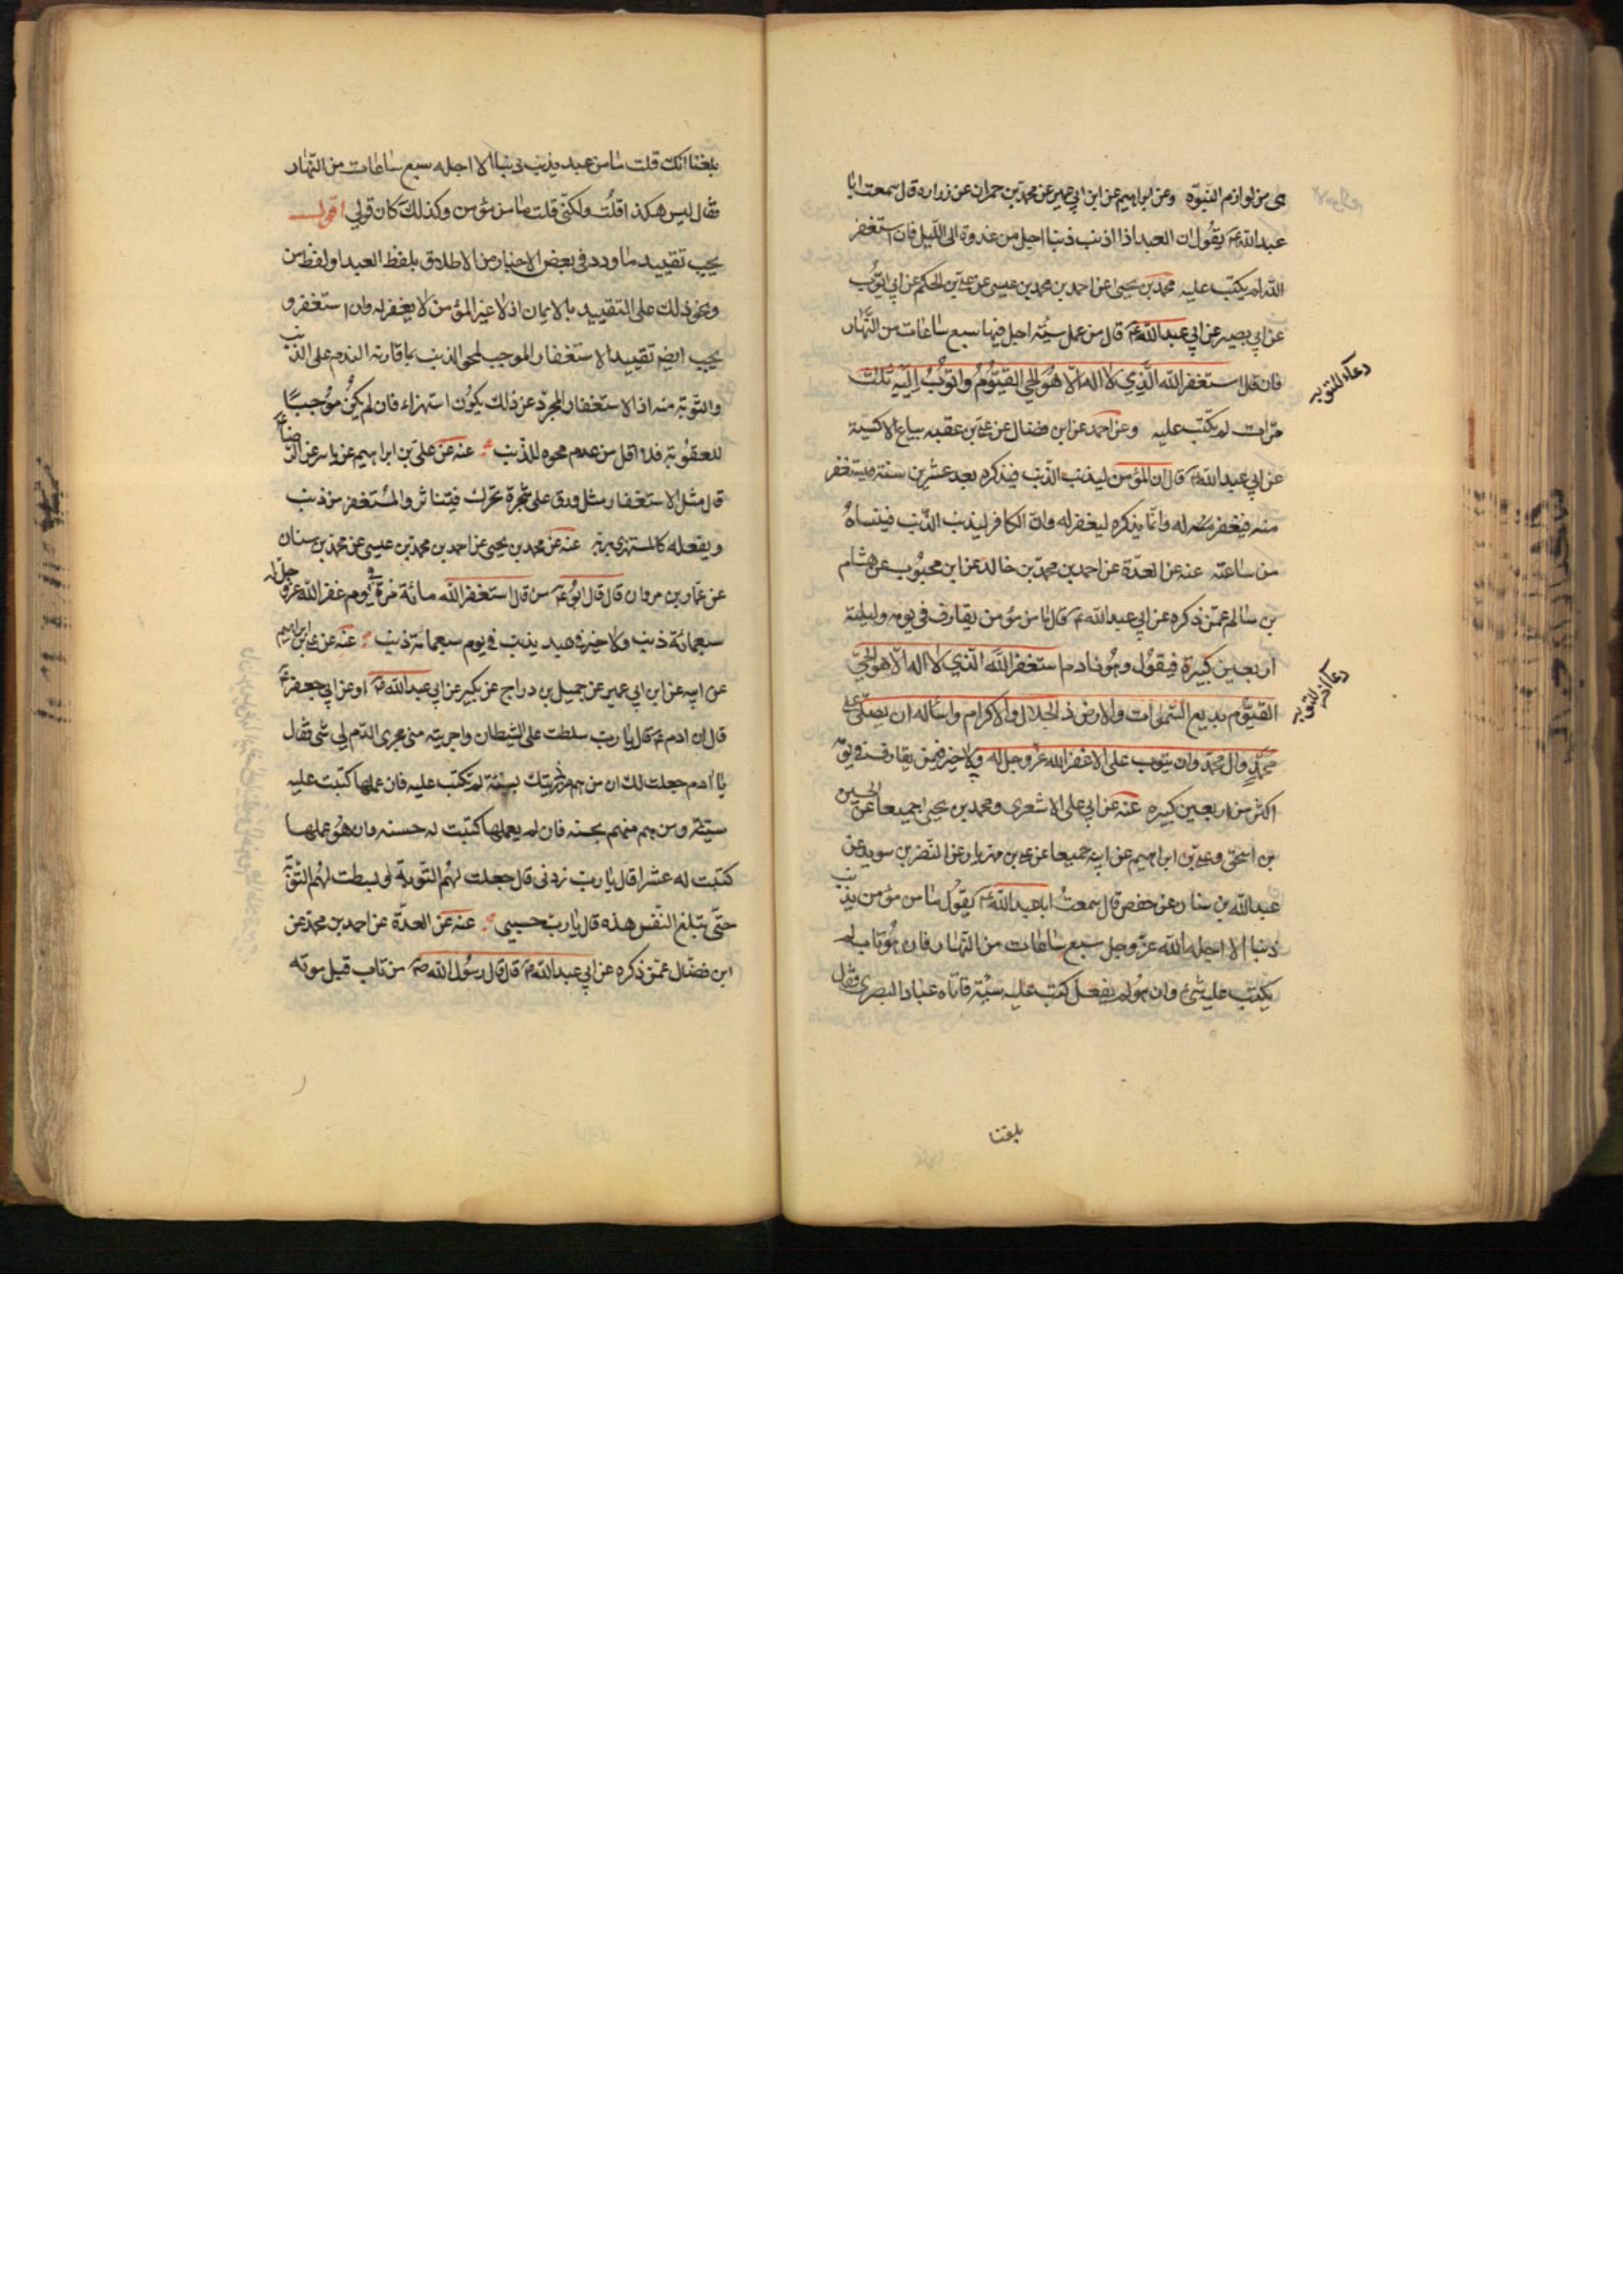 هى من لوازم النبوّة وعن ابراهيم عن ابن ابي عمير عن محمد بن حمران عن زراره قال سمعت ابا
عبد الله ع يقول ان العبد اذا اذنب ذنبا اجل من غدوة الى الليل فان استغفر
الله لم يكتب عليه محمد بن يحيى عن احمد بن محمد بن عيسى عن علي بن الحكم عن ابي ايّوب
عن ابي بصير عن ابي عبد الله ع قال من عمل سيئة اجل فيها سبع ساعات من النّهار
فان قال استغفر الله الّذي لا اله الّا هو الحي القيّوم واتوب اليه ثلث
دعاء للتوبه
مرات لم يكتب عليه وعن احمد عن ابن فضال عن علي بن عقبه بياع الاكسية
عن ابي عبد الله ع قال ان المؤمن ليذنب الذّنب فيذكره بعد عشرين سنة فيستغفر
منه فيغفر له وانّما يذكره ليغفر له وانّ الكافر ليذنب الذّنب فينساه
من ساعته عنه عن العدّة عن احمد بن محمد بن خالد عن ابن محبوب عن هشام
بن سالم عمّن ذكره عن ابي عبد الله ع قال ما من مؤمن يقارف في يومه وليلته
اربعين كبيرة فيقول وهو نادم استغفر الله الّذي لا اله الّا هو الحيّ
القيّوم بديع السّموات والارض ذا الجلال والاكرام واساله ان يصلّي على
دعاء اخر للتوبه
محمّد وال محمّد وان يتوب على الا غفر الله عزّ وجل له ولا خير فيمن يقارف في يومه
اكثر من اربعين كبيره عنه عن ابي علي الاشعري ومحمد بن يحيى جميعا عن الحسين
بن اسحق وعلي بن ابراهيم عن ابيه جميعا عن علي بن مهزيار عن النّضر بن سويد عن
عبد الله بن سنان عن حفص قال سمعت ابا عبد الله ع يقول ما من مؤمن يذنب
ذنبا الا اجله الله عزّ وجل سبع ساعات من النّهار فان هو تاب لم
يكتب عليه شئ وان هو لم يفعل كتب عليه سيّئة فاتاه عباد البصرى فقال
بلغنا
بلغنا انّك قلت ما من عبد يذنب ذنبا الا اجله سبع ساعات من النّهار
فقال ليس هكذا قلت ولكنّي قلت ما من مؤمن وكذلك كان قولي اقول
يجب تقييد ما ورد في بعض الاخبار من الاطلاق بلفظ العبد او لفظ من
ونحو ذلك على التقييد بالايمان اذ لا غير المؤمن لا يغفر له وان استغفر و
يجب ايضا تقييد الاستغفار الموجب لمحو الذنب بما قارنه الندم على الذنب
والتّوبة منه اذ الاستغفار المجرّد عن ذلك يكون استهزاء فان لم يكن موجبًا
للعقوبة فلا اقل من عدم محوه للذّنب عنه عن علي بن ابراهيم عن ياسر عن الرّضا ع
قال مثل الاستغفار مثل ورق على شجرة تحرّك فيتناثر والمستغفر من ذنب
ويفعله كالمستهزئ بربه عنه عن محمد بن يحيى عن احمد بن محمد بن عيسى عن محمد بن سنان
عن عمار بن مروان قال قال ابو ع من قال استغفر الله مائة مرة في يوم غفر الله عزّ وجل له
سبعمائة ذنب ولا خير في عبد يذنب في يوم سبعمائة ذنب عنه عن علي بن ابراهيم
عن ابيه عن ابن ابي عمير عن جميل بن دراج عن بكير عن ابي عبد الله ع او عن ابي جعفر ع
قال ان ادم ع قال يا ربّ سلطت على الشيطان واجريته منى مجرى الدّم لي شئ فقال
يا ادم جعلت لك ان من هم من ذريتك بسيّئة لم تكتب عليه فان عملها كتبت عليه
سيّئة ومن هم منهم بحسنه فان لم يعملها كتبت له حسنه وان هو عملها
كتبت له عشرا قال يا ربّ زدنى قال جعلت لهم التّوبة او بسطت لهم التّوبة
حتّى تبلغ النّفس هذه قال يا ربّ حسبي عنه عن العدّة عن احمد بن محمد عن
ابن فضّال عمّن ذكره عن ابي عبد الله ع قال قال رسول الله ص من تاب قبل موته